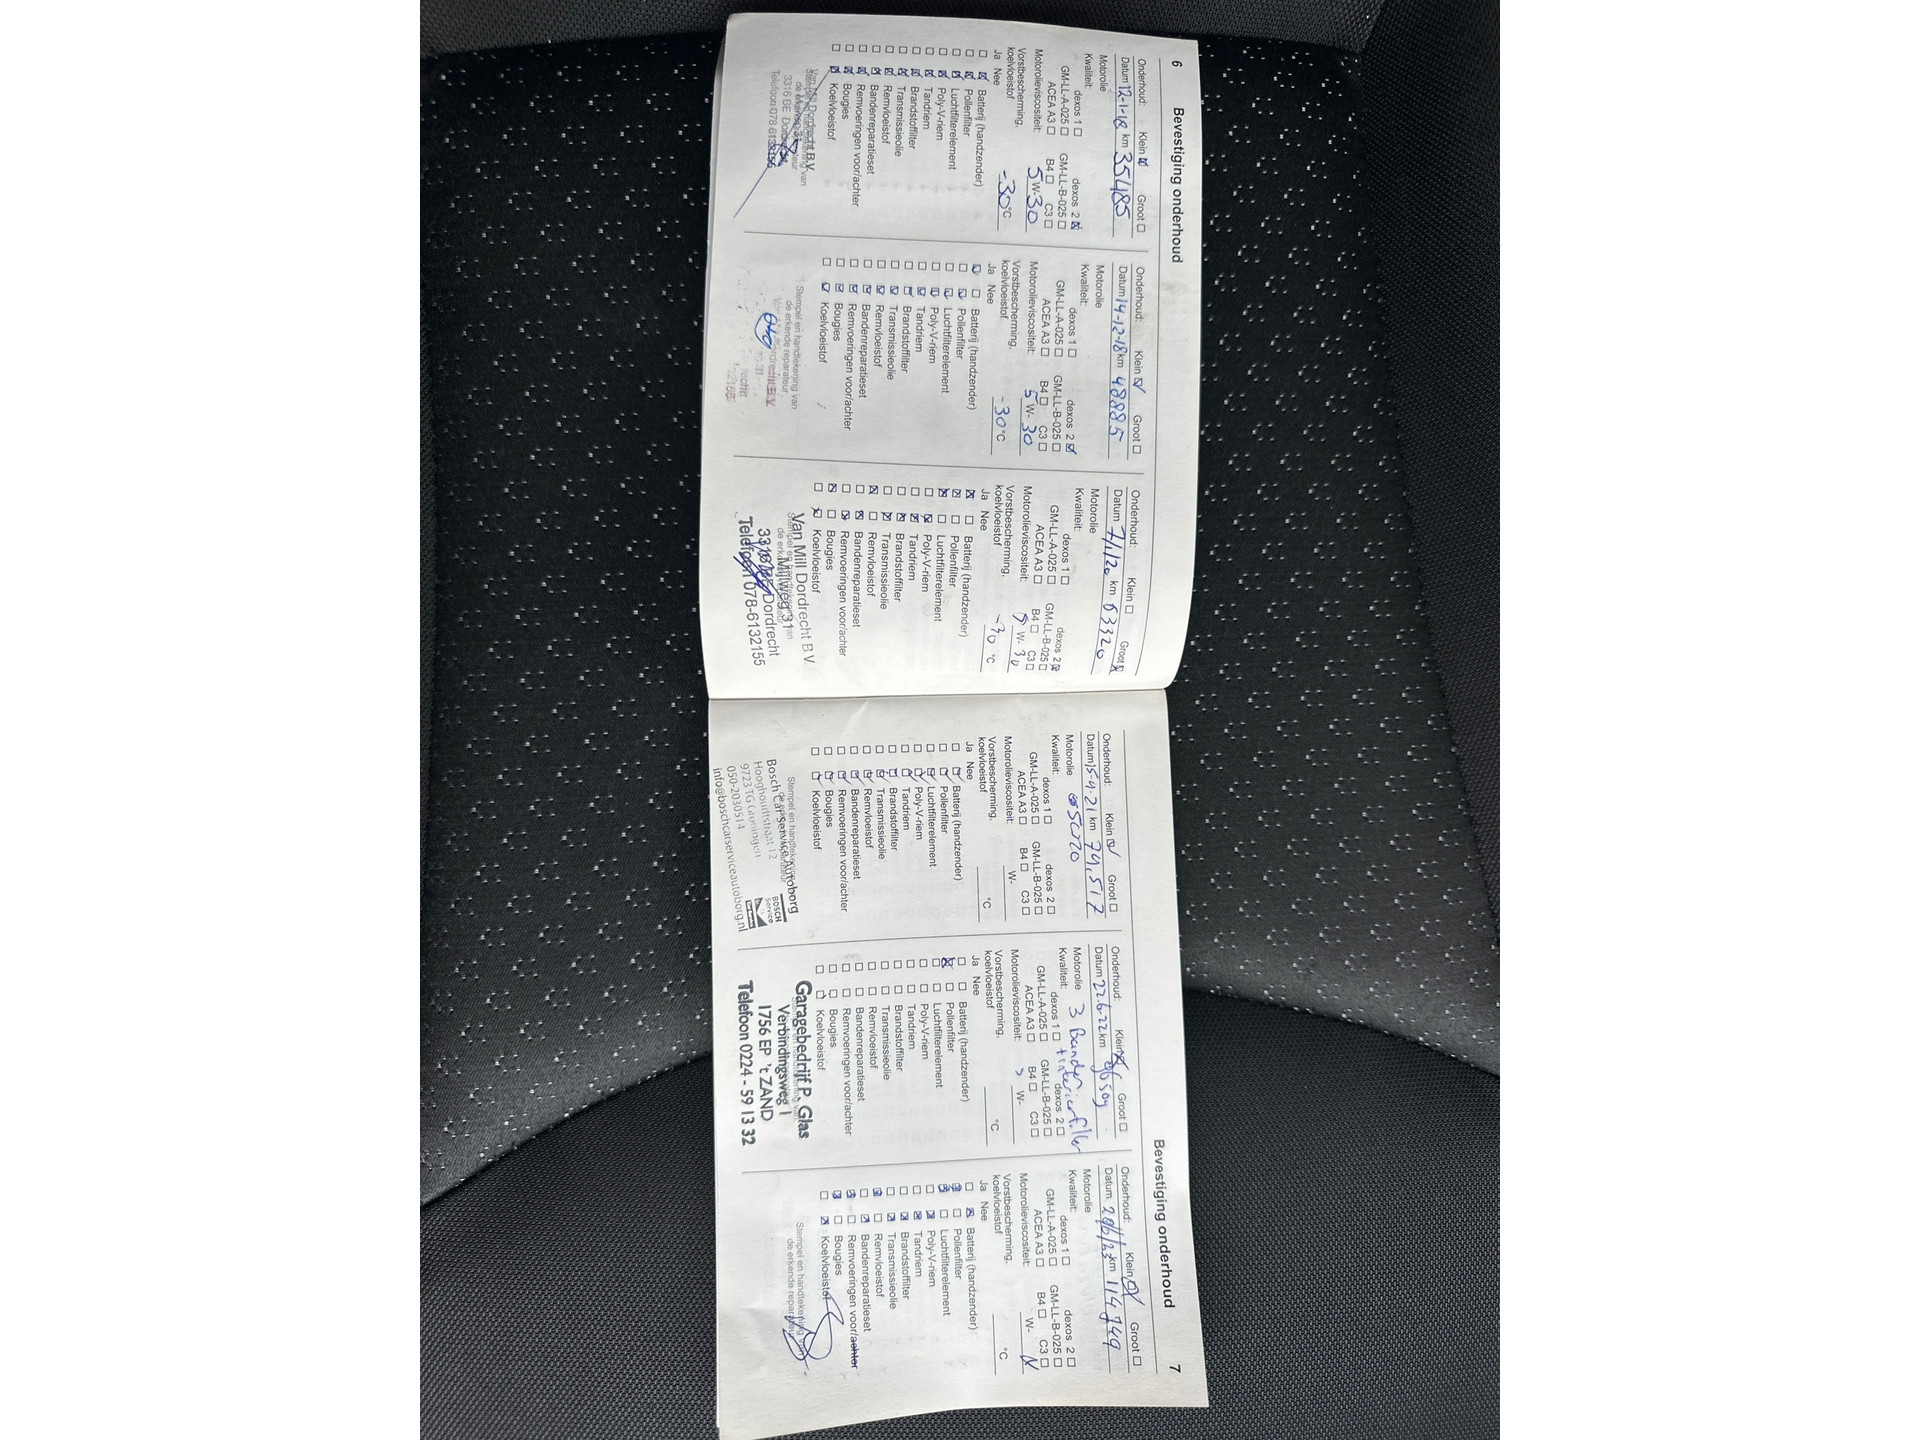 6 Bevestiging onderhoud
Onderhoud: Klein Groot
Datum 12-1-18 km 35485
Motorolie
Kwaliteit: dexos 1 dexos 2
GM-LL-A-025 GM-LL-B-025
ACEA A3 B4 C3
Motorolieviscositeit: 5 W- 30
Vorstbescherming,
koelvloeistof -30 °C
Ja Nee
Batterij (handzender)
Pollenfilter
Luchtfilterelement
Poly-V-riem
Tandriem
Brandstoffilter
Transmissieolie
Remvloeistof
Bandenreparatieset
Remvoeringen voor/achter
Bougies
Koelvloeistof
Van Mill Dordrecht B.V.
Stempel en handtekening van
de erkende reparateur
3316 BE Dordrecht
Telefoon 078-6132155
Onderhoud: Klein Groot
Datum 14-12-18 km 48885
Motorolie
Kwaliteit: dexos 1 dexos 2
GM-LL-A-025 GM-LL-B-025
ACEA A3 B4 C3
Motorolieviscositeit: 5 W- 30
Vorstbescherming,
koelvloeistof -30 °C
Ja Nee
Batterij (handzender)
Pollenfilter
Luchtfilterelement
Poly-V-riem
Tandriem
Brandstoffilter
Transmissieolie
Remvloeistof
Bandenreparatieset
Remvoeringen voor/achter
Bougies
Koelvloeistof
Stempel en handtekening van
de erkende reparateur
Onderhoud: Klein Groot
Datum 7/1/20 km 63320
Motorolie
Kwaliteit: dexos 1 dexos 2
GM-LL-A-025 GM-LL-B-025
ACEA A3 B4 C3
Motorolieviscositeit: 5 W- 30
Vorstbescherming,
koelvloeistof -30 °C
Ja Nee
Batterij (handzender)
Pollenfilter
Luchtfilterelement
Poly-V-riem
Tandriem
Brandstoffilter
Transmissieolie
Remvloeistof
Bandenreparatieset
Remvoeringen voor/achter
Bougies
Koelvloeistof
Van Mill Dordrecht B.V.
Stempel en handtekening van
de erkende reparateur
Mijlweg 31
Dordrecht
Telefoon 078-6132155
Bevestiging onderhoud 7
Onderhoud: Klein Groot
Datum 15-4-21 km 79,517
Motorolie
Kwaliteit: dexos 1 dexos 2
GM-LL-A-025 GM-LL-B-025
ACEA A3 B4 C3
Motorolieviscositeit: W-
Vorstbescherming,
koelvloeistof °C
Ja Nee
Batterij (handzender)
Pollenfilter
Luchtfilterelement
Poly-V-riem
Tandriem
Brandstoffilter
Transmissieolie
Remvloeistof
Bandenreparatieset
Remvoeringen voor/achter
Bougies
Koelvloeistof
Stempel en handtekening van
Bosch Car Service Autoborg
Hooghoutstraat 12
9723 TG Groningen
050-2030514
info@boschcarserviceautoborg.nl
BOSCH
Service
Onderhoud: Klein Groot
Datum 22.6.22 km
Motorolie 3 Banden
Kwaliteit: + interieurfilter
dexos 1 dexos 2
GM-LL-A-025 GM-LL-B-025
ACEA A3 B4 C3
Motorolieviscositeit: W-
Vorstbescherming,
koelvloeistof °C
Ja Nee
Batterij (handzender)
Pollenfilter
Luchtfilterelement
Poly-V-riem
Tandriem
Brandstoffilter
Transmissieolie
Remvloeistof
Bandenreparatieset
Remvoeringen voor/achter
Bougies
Koelvloeistof
Garagebedrijf P. Glas
Verbindingsweg 1
1756 EP 't ZAND
Telefoon 0224 - 59 13 32
Onderhoud: Klein Groot
Datum 20/6/23 km 114749
Motorolie
Kwaliteit: dexos 1 dexos 2
GM-LL-A-025 GM-LL-B-025
ACEA A3 B4 C3
Motorolieviscositeit: W-
Vorstbescherming,
koelvloeistof °C
Ja Nee
Batterij (handzender)
Pollenfilter
Luchtfilterelement
Poly-V-riem
Tandriem
Brandstoffilter
Transmissieolie
Remvloeistof
Bandenreparatieset
Remvoeringen voor/achter
Bougies
Koelvloeistof
Stempel en handtekening van
de erkende reparateur